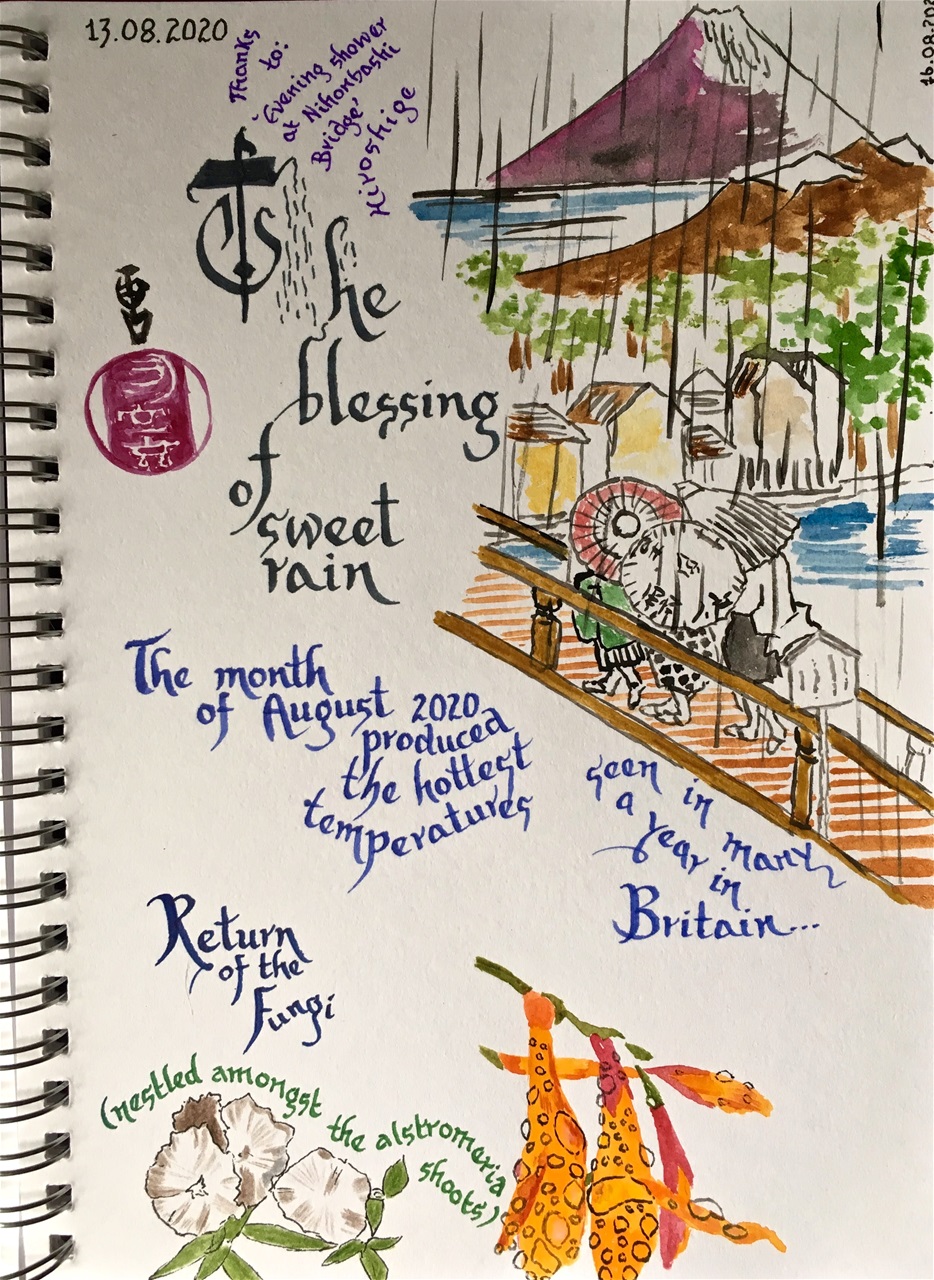 13.08.2020
16.08.202
Thanks
to:
'Evening shower
at Nihonbashi
Bridge'
Hiroshige
The
blessing
of
sweet
rain
The month
of August 2020
produced
the hottest
temperatures
seen in
a
year many
in
Britain...
Return
of the
Fungi
(nestled amongst the alstromeria
shoots)